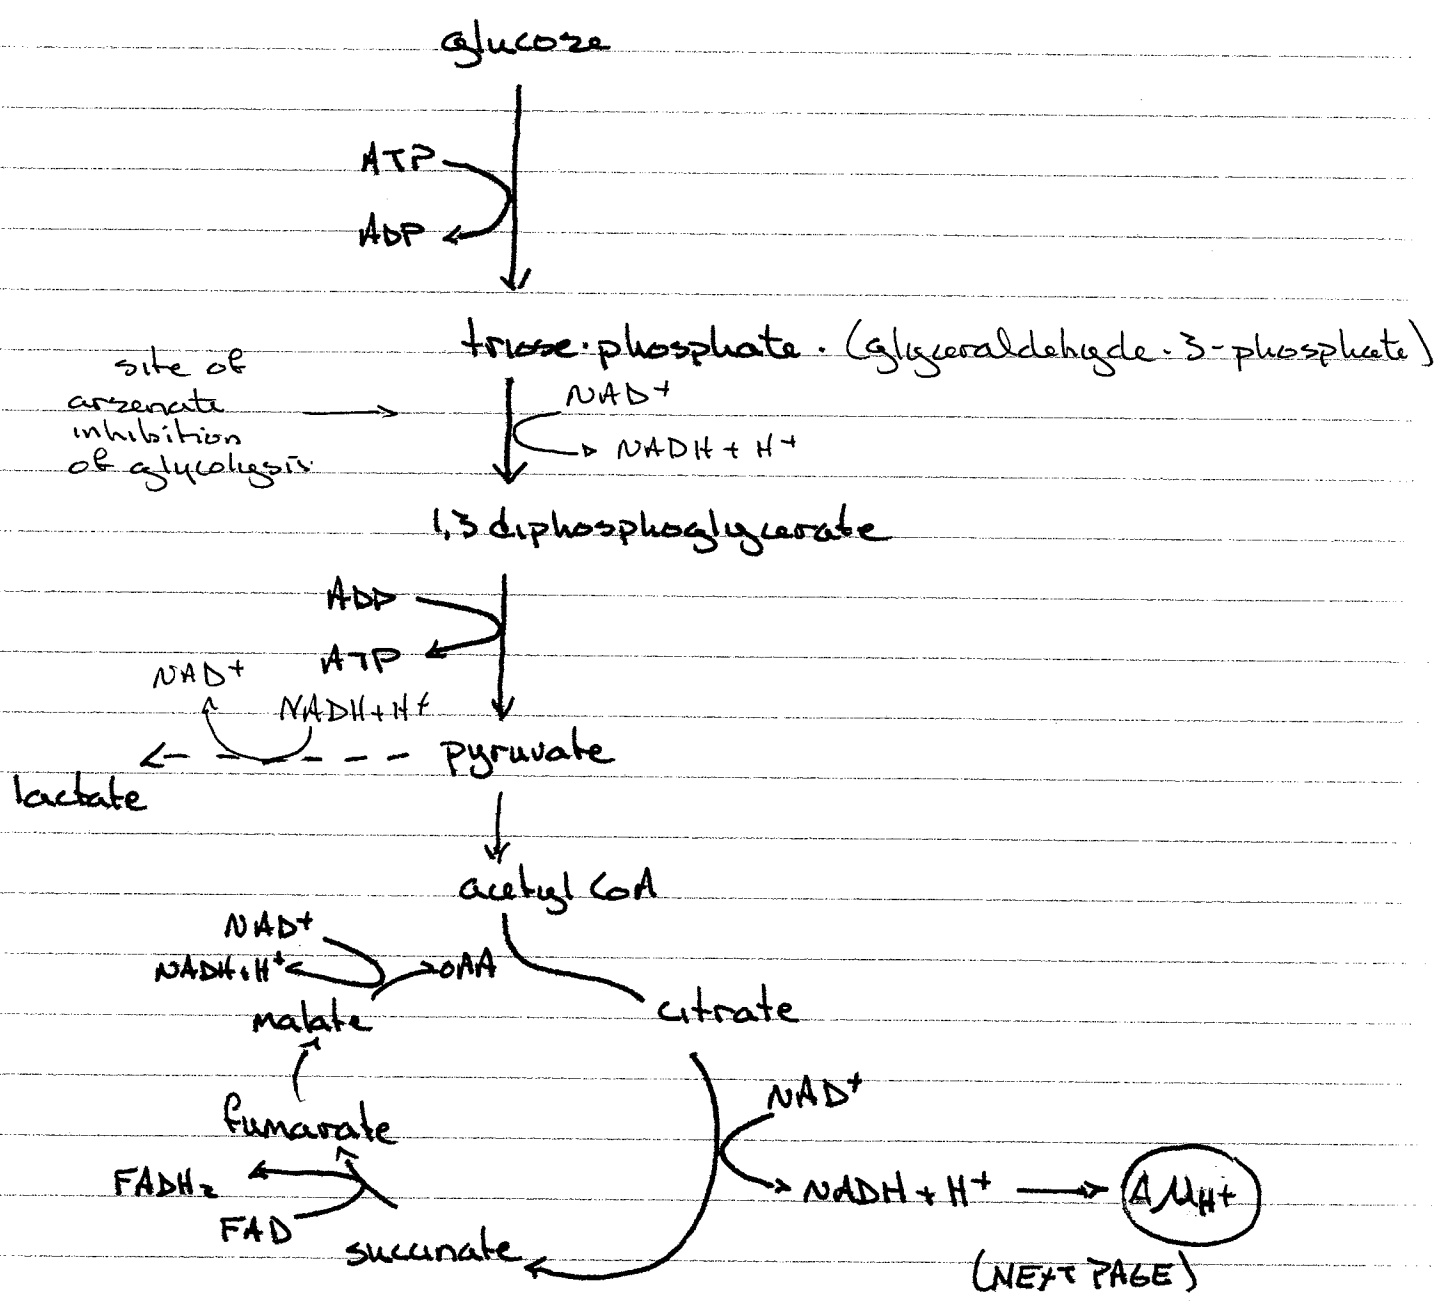 glucose
ATP
ADP
triose-phosphate. (glyceraldehyde-3-phosphate)
site of
arsenate
inhibition
of glycolysis.
NAD+
NADH + H+
1,3 diphosphoglycerate
ADP
ATP
NAD+
NADH + H+
pyruvate
lactate
acetyl CoA
NAD+
NADH + H+
OAA
malate
citrate
NAD+
fumarate
FADH2
NADH + H+
ΔμH+
FAD
succinate
(NEXT PAGE)